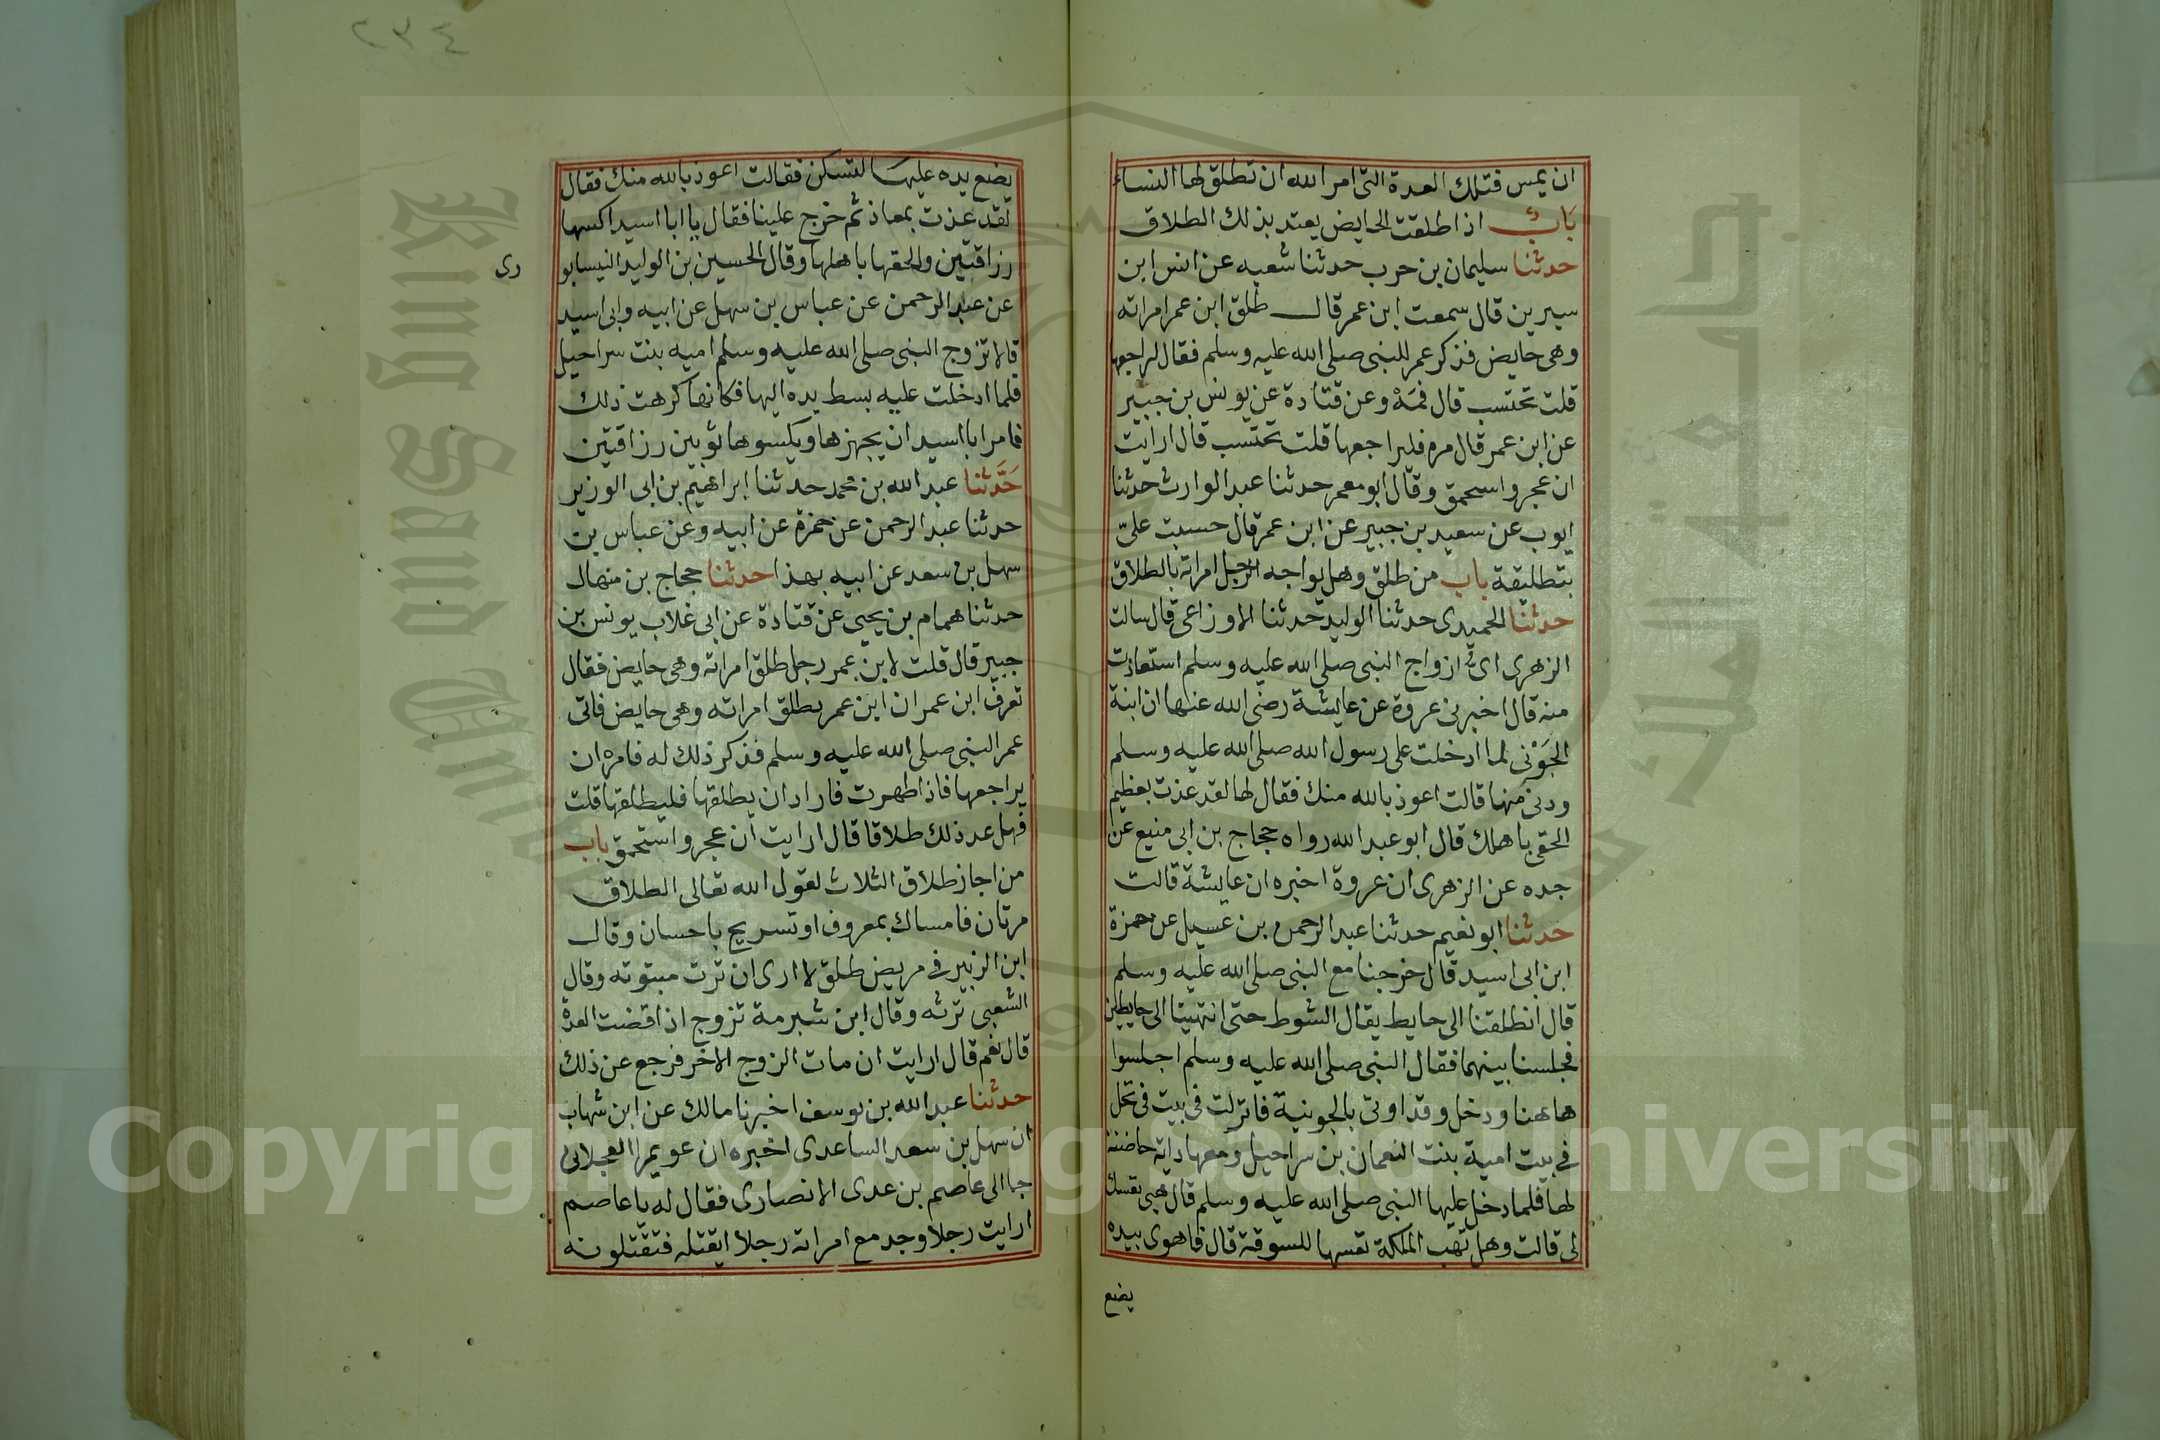 ان يمس فتلك العدة التى امر الله ان تطلق لها النساء
باب اذا طلقت الحايض يعتد بذلك الطلاق
حدثنا سليمان بن حرب حدثنا شعبه عن انس ابن
سيرين قال سمعت ابن عمر قال طلق ابن عمر امراته
وهى حايض فذكر عمر للنبى صلى الله عليه وسلم فقال ليراجعها
قلت تحتسب قال فمَهْ وعن قتادة عن يونس بن جبير
عن ابن عمر قال مره فليراجعها قلت تحتسب قال ارايت
ان عجز واستحمق وقال ابو معمر حدثنا عبد الوارث حدثنا
ايوب عن سعيد بن جبير عن ابن عمر قال حسبت علىّ
بتطليقة باب من طلق وهل يواجه الرجل امراته بالطلاق
حدثنا الحميدى حدثنا الوليد حدثنا الاوزاعى قال سالت
الزهرى اىُّ ازواج النبى صلى الله عليه وسلم استعاذت
منه قال اخبرنى عروة عن عايشة رضى الله عنها ان ابنة
الجَوْنى لما ادخلت على رسول الله صلى الله عليه وسلم
ودنى منها قالت اعوذ بالله منك فقال لها لقد عذت بعظيم
الحقى باهلك قال ابو عبد الله رواه حجاج بن ابى منيع عن
جده عن الزهرى ان عروة اخبره ان عايشة قالت
حدثنا ابو نعيم حدثنا عبد الرحمن بن غسيل عن حمزة
ابن ابى اسيد قال خرجنا مع النبى صلى الله عليه وسلم
قال انطلقنا الى حايط يقال الشوط حتى انتهينا الى حايطين
فجلسنا بينهما فقال النبى صلى الله عليه وسلم اجلسوا
هاهنا ودخل وقد اوتى بالجونية فانزلت فى بيت فى نخل
فى بيت امية بنت النعمان بن سراحيل ومعها داية حاضنة
لها فلما دخل عليها النبى صلى الله عليه وسلم قال هبى نفسك
لى قالت وهل تهب الملكة نفسها للسوقة قال فاهوى بيده
يضع
٢٣٤
يضع يده عليها لتسكن فقالت اعوذ بالله منك فقال
لقد عذت بمعاذ ثم خرج علينا فقال يا ابا اسيد اكسها
رزاقتين والحقها باهلها وقال الحسين بن الوليد النيسابو
رى
عن عبد الرحمن عن عباس بن سهل عن ابيه وابى اسيد
قالا تزوج النبى صلى الله عليه وسلم اميه بنت سراحيل
فلما ادخلت عليه بسط يده اليها فكانها كرهت ذلك
فامر ابا اسيد ان يجهزها ويكسوها ثوبين رزاقتين
حَدَّثنا عبد الله بن محمد حدثنا ابراهيم بن ابى الوزير
حدثنا عبد الرحمن عن حمزة عن ابيه وعن عباس بن
سهل بن سعد عن ابيه بهذا حدثنا حجاج بن منهال
حدثنا همام بن يحيى عن قتادة عن ابى غلاب يونس بن
جبير قال قلت لابن عمر رجل طلق امراته وهى حايض فقال
تعرف ابن عمر ان ابن عمر طلق امراته وهى حايض فاتى
عمر النبى صلى الله عليه وسلم فذكر ذلك له فامره ان
يراجعها فاذا طهرت فاراد ان يطلقها فليطلقها قلت
فهل عد ذلك طلاقا قال ارايت ان عجز واستحمق باب
من اجاز طلاق الثلاث لقول الله تعالى الطلاق
مرتان فامساك بمعروف او تسريح باحسان وقال
ابن الزبير فى مريض طلق لا ارى ان ترث مبتوته وقال
الشعبى ترثه وقال ابن شبرمة تزوج اذا قضت العدة
قال نعم قال ارايت ان مات الزوج الاخر فرجع عن ذلك
حدثنا عبد الله بن يوسف اخبرنا مالك عن ابن شهاب
ان سهل بن سعد الساعدى اخبره ان عويمرا العجلانى
جا الى عاصم بن عدى الانصارى فقال له يا عاصم
ارايت رجلا وجد مع امراته رجلا ايقتله فتقتلونه
Copyright © King Saud University
King Saud University
جامعة الملك سعود